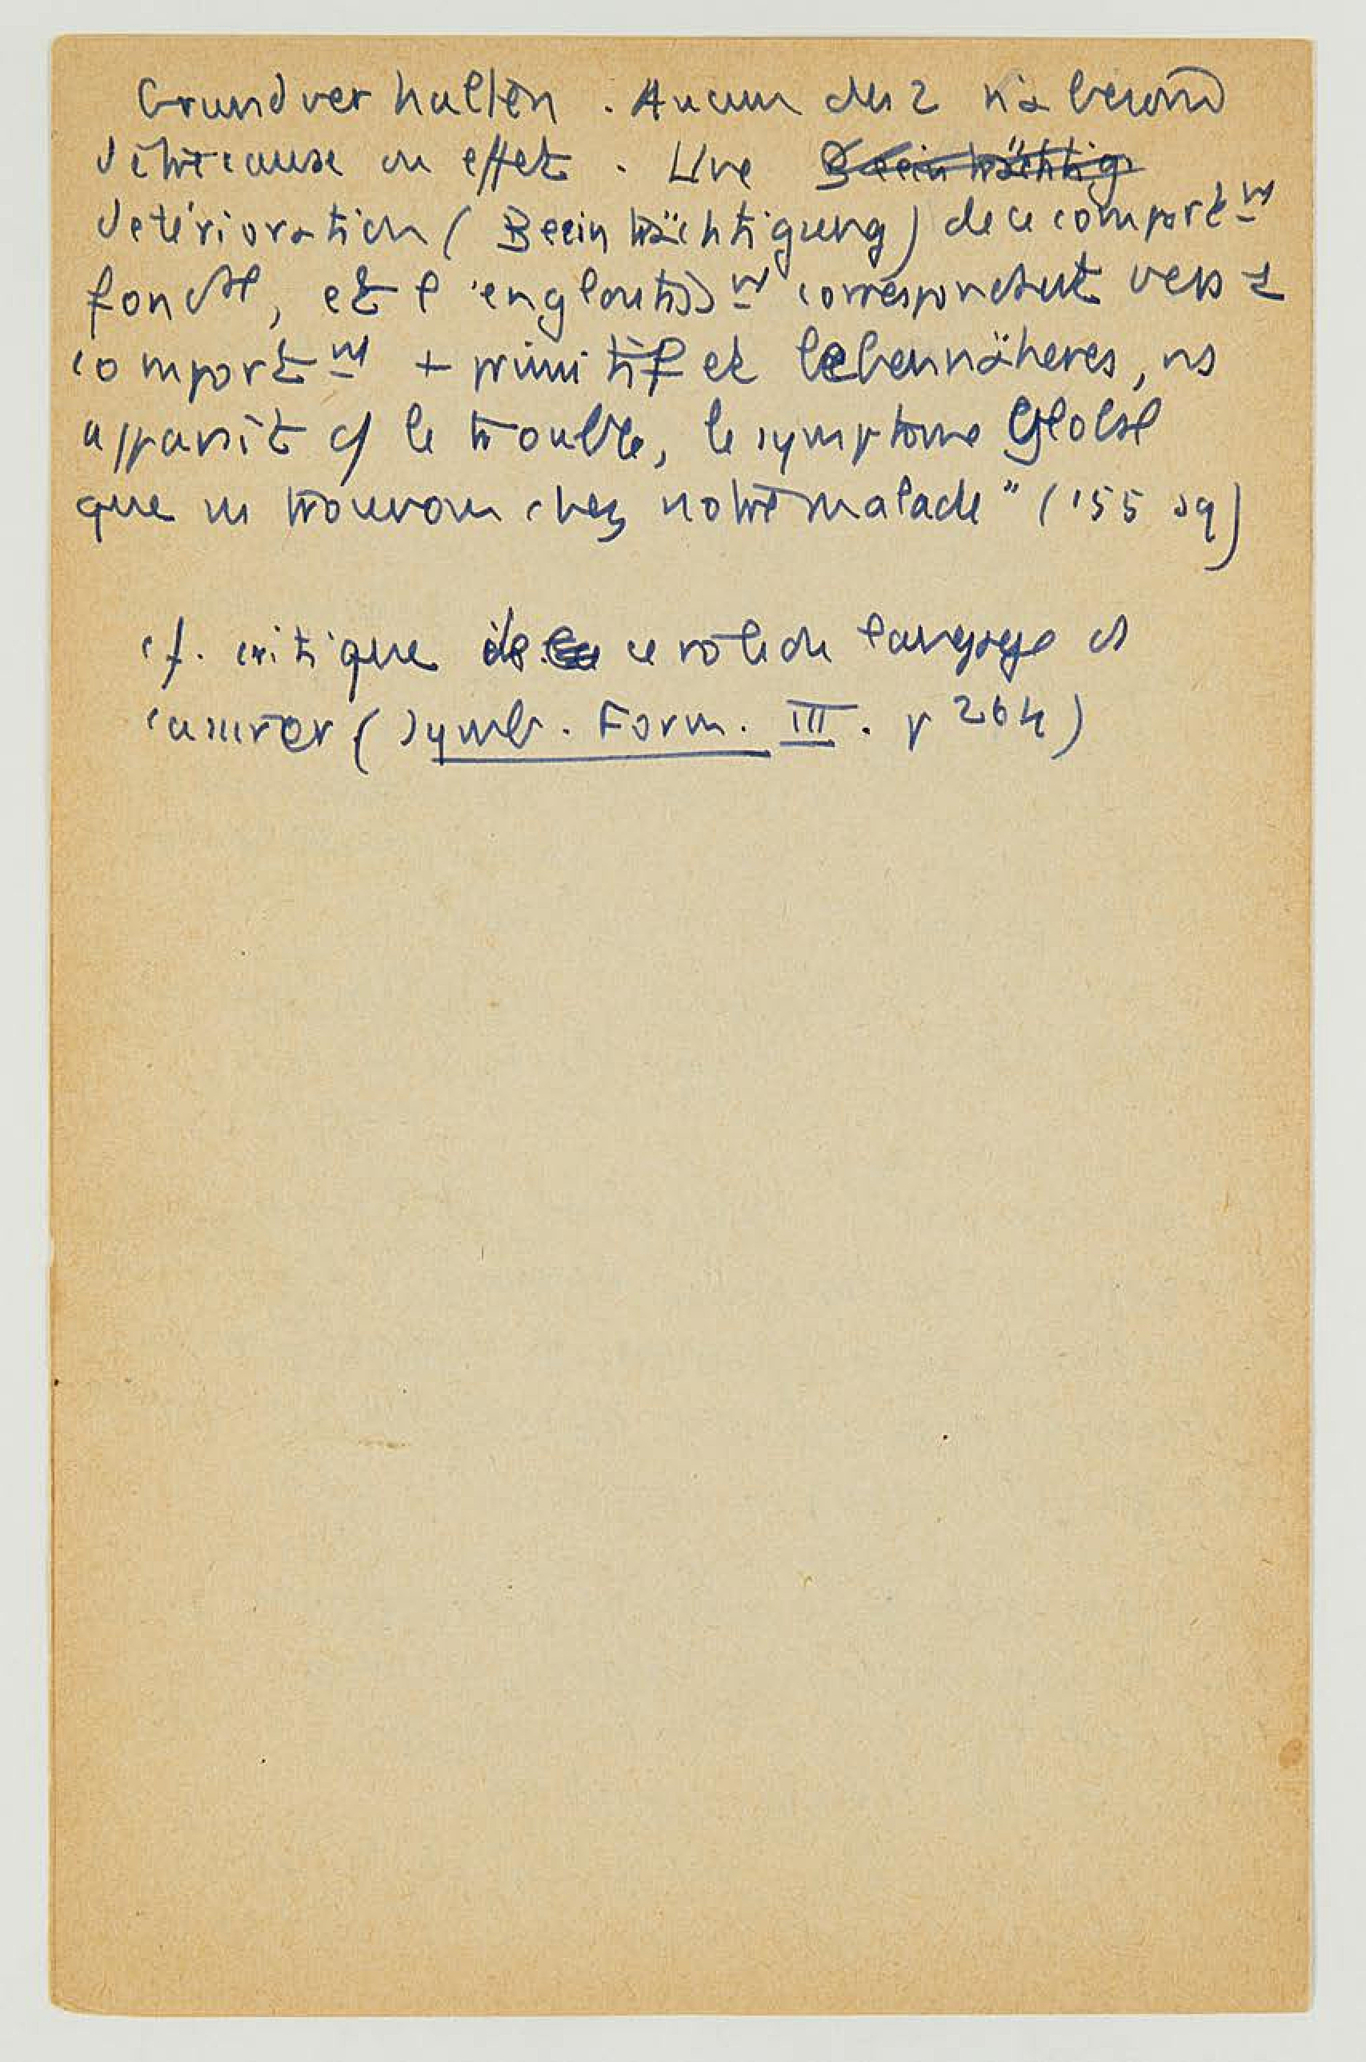 Grundverhalten. Aucun des 2 n'a besoin
d'être cause ou effet. Une Beeinträchtig
détérioration (Beeinträchtigung) de ce comportt
fondal, et l'engloutisst correspondant vers 1
comportt + primitif et lebennäheres, ns
apparaît c/ le trouble, le symptome Global
que ns trouvons chez notre malade" (155 sq)
cf. critique de ce rôle du langage ds
Cassirer (Symb. Form. III. p 264)